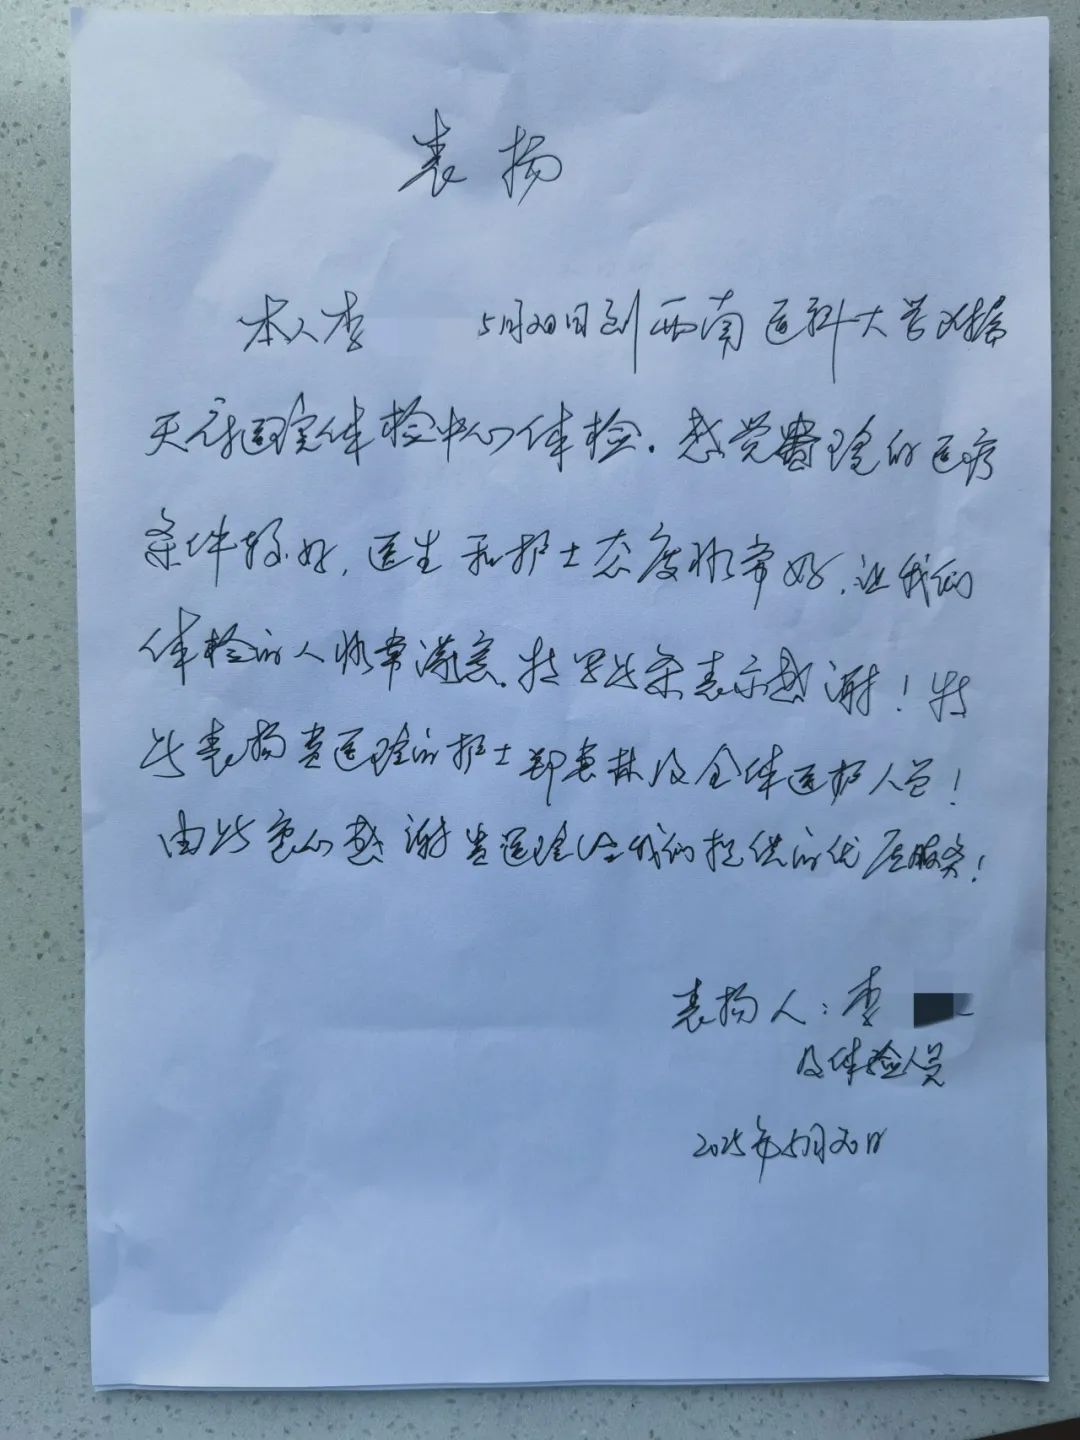 表扬
本人李 5月20日到西南医科大学附属
天府医院体检中心体检.感觉贵院的医疗
条件较好,医生和护士态度非常好,让我们
体检的人非常满意.特写此条表示感谢!特
此表扬贵医院的护士郑惠林及全体医护人员!
由此衷心感谢贵医院给我们提供的优质服务!
表扬人:李
及体检人员
2025年5月20日